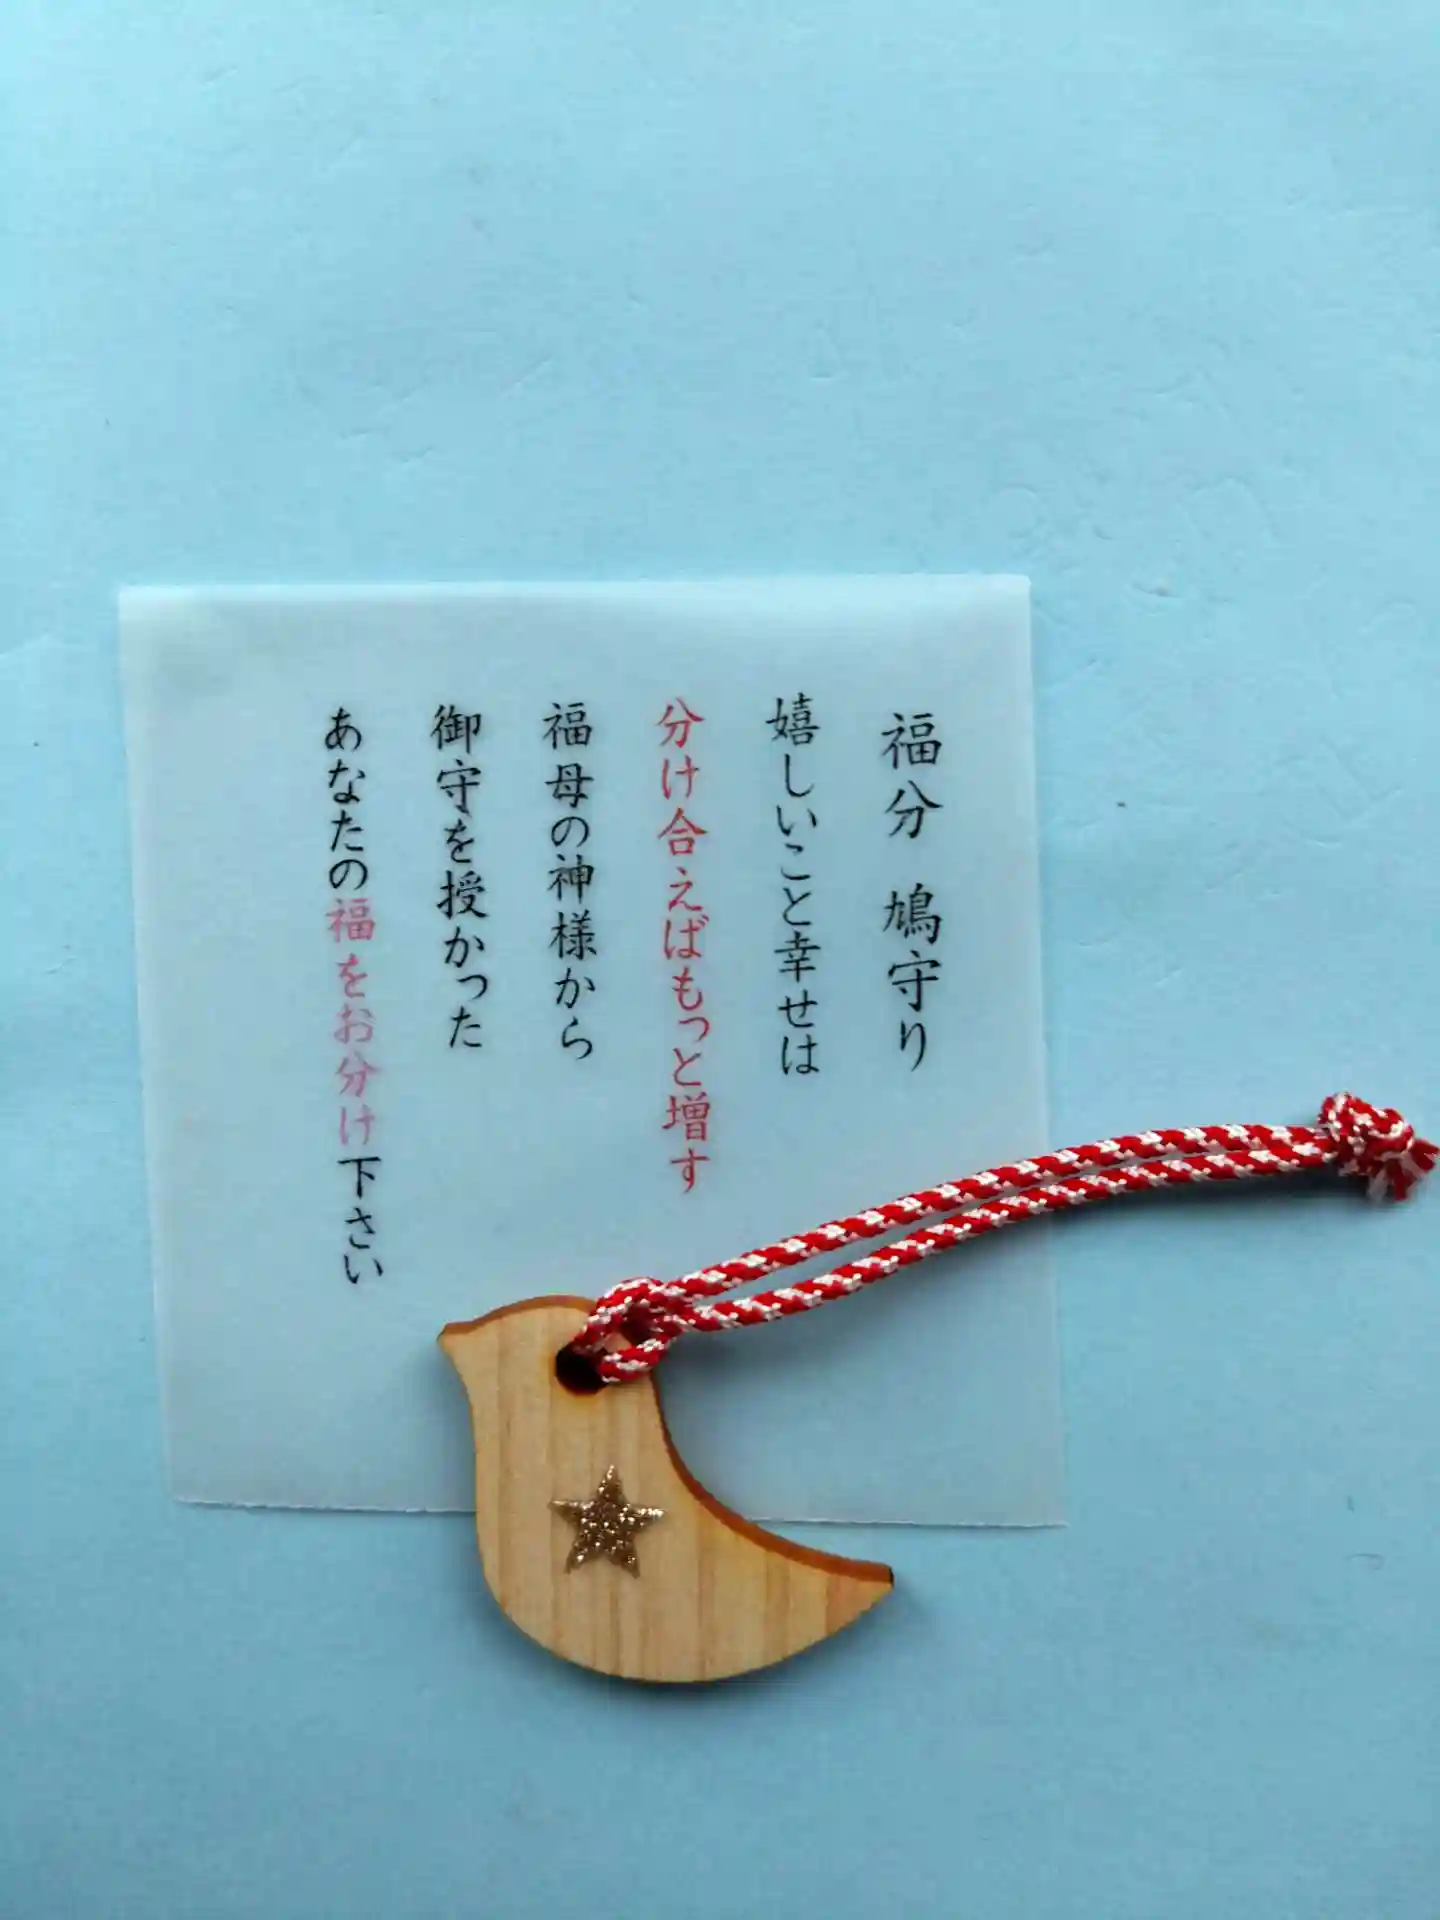 福分 鳩守り
嬉しいこと幸せは
分け合えばもっと増す
福母の神様から
御守を授かった
あなたの福をお分け下さい